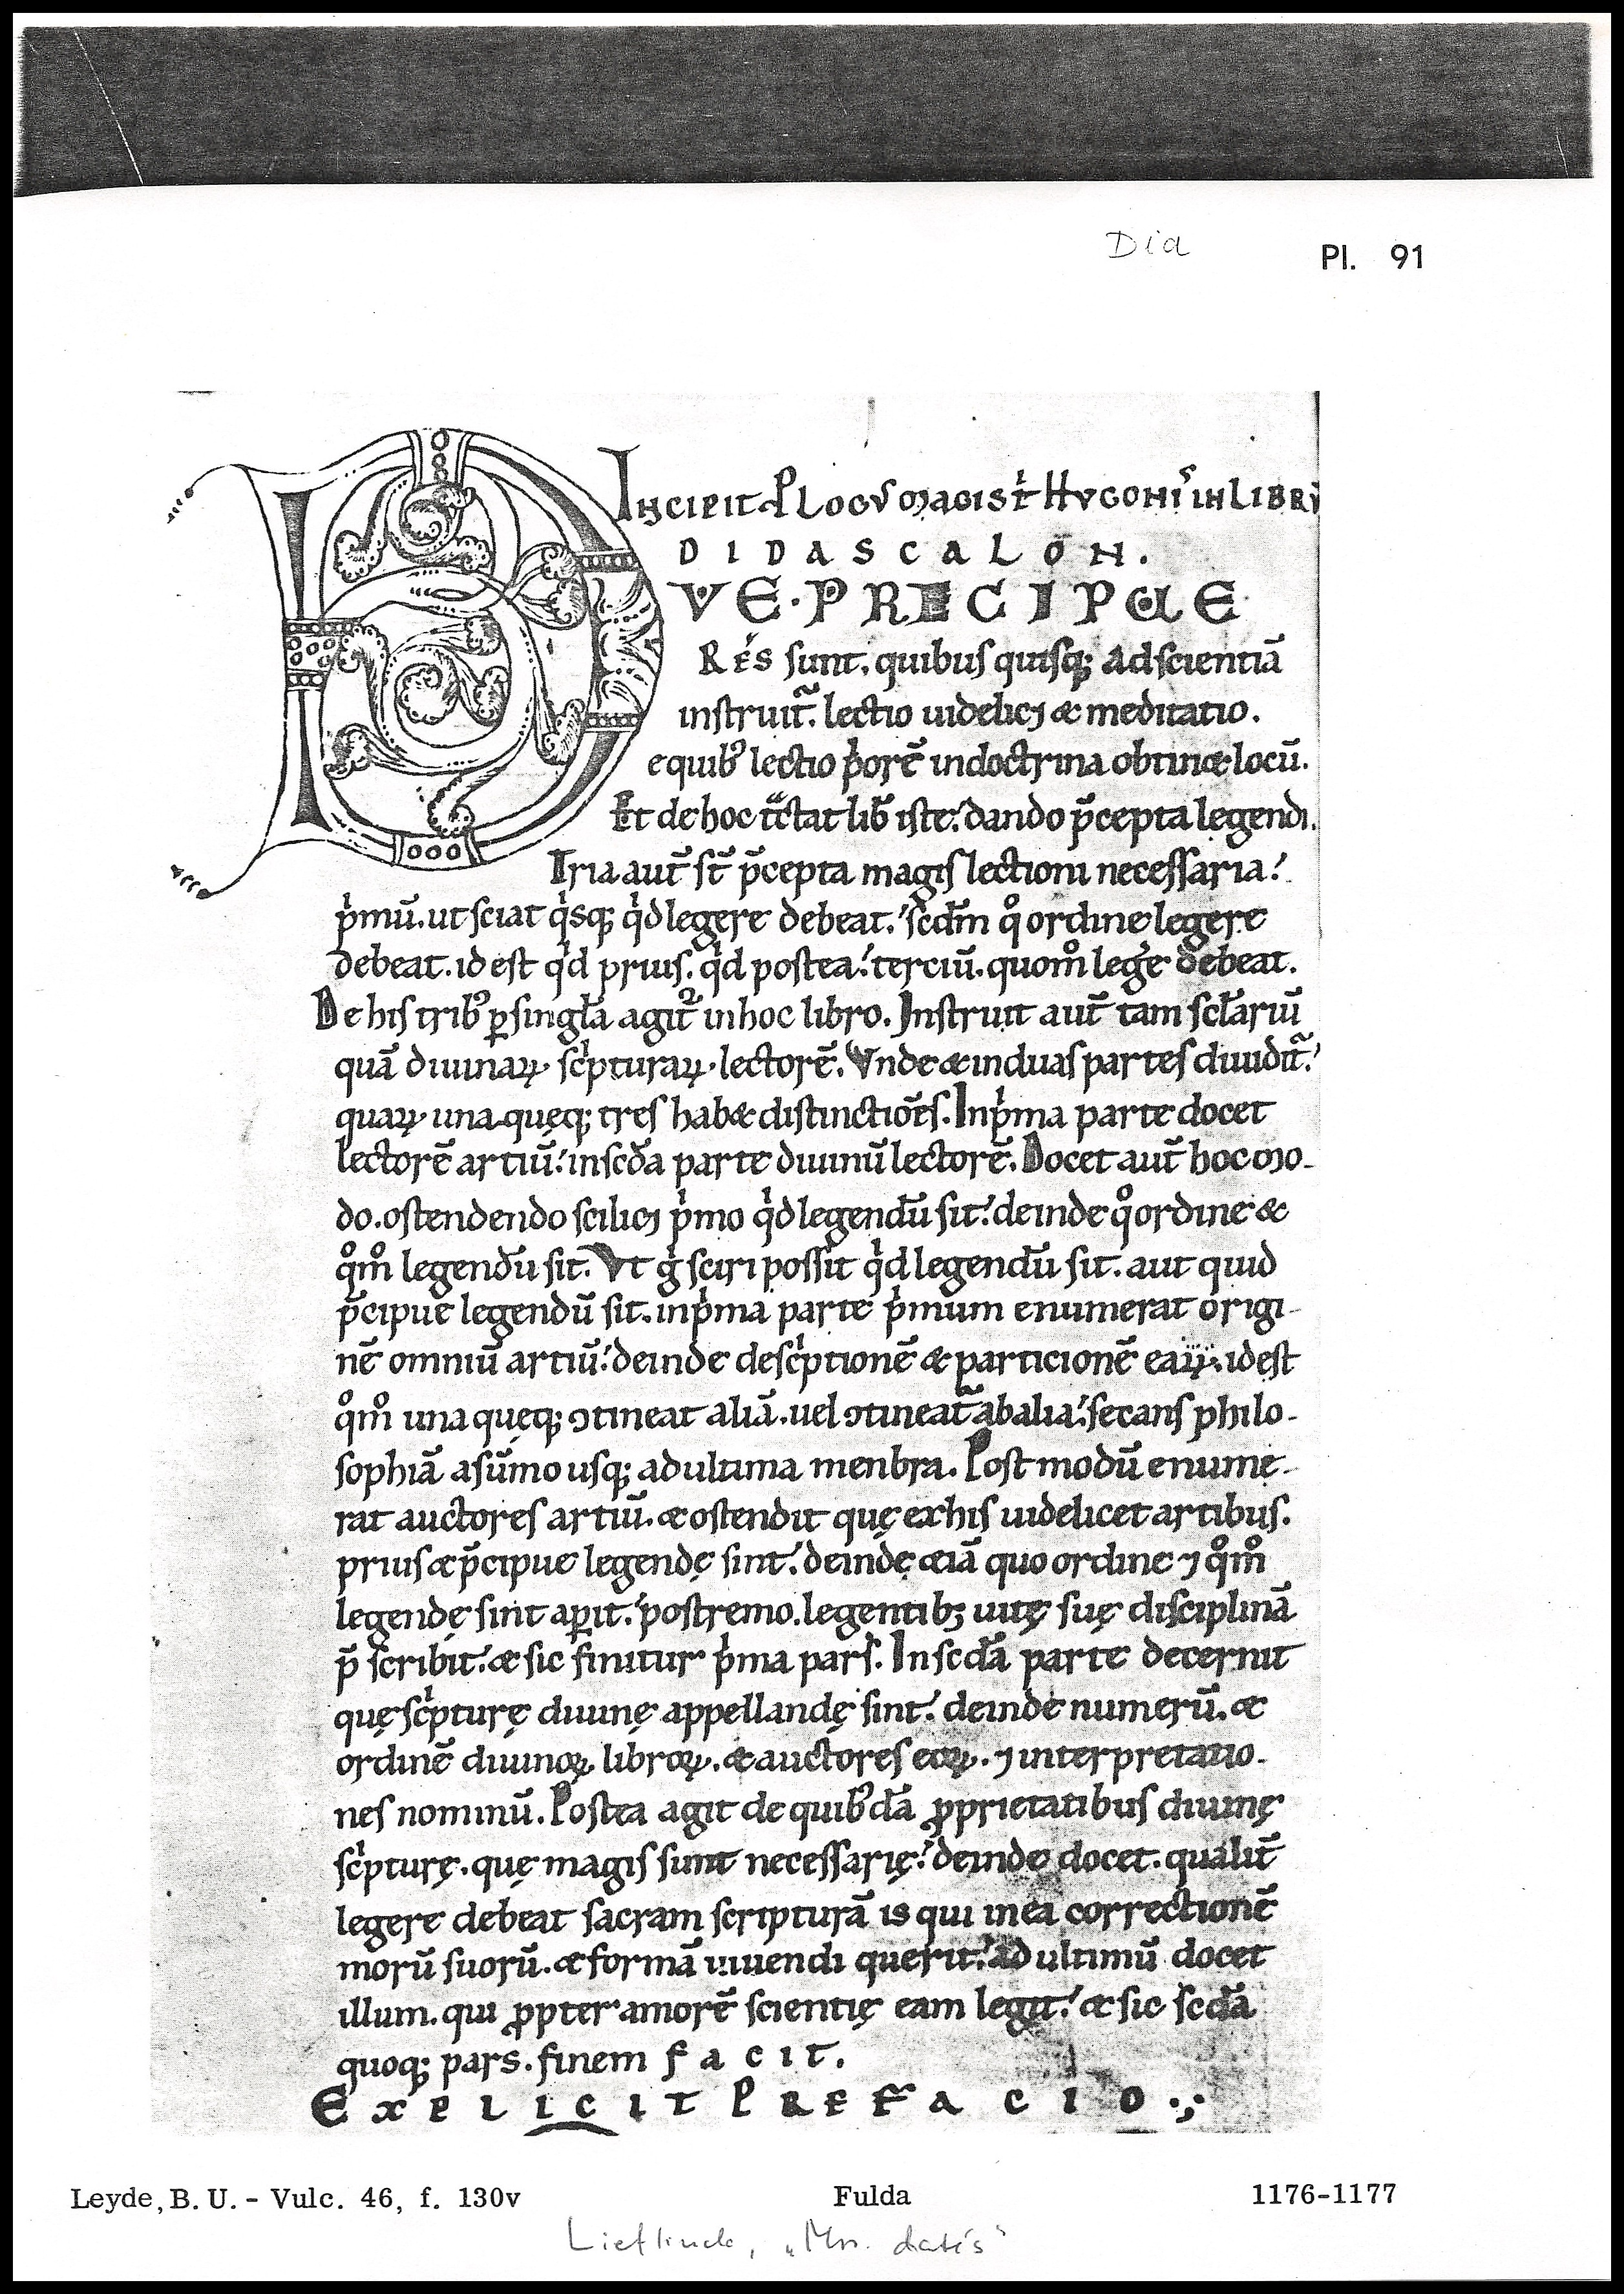 Dia
Pl. 91
Incipit ꝓlogus magist̾ Hugonis in libru̅
DIDASCALON.
VE PRECIPUE
Res sunt. quibus quisq; ad scientiā
instruit᷑. lectio uidelicꝫ & meditatio.
e quib᷒ lectio p̍orē in doctrina obtin& locū.
Et de hoc tͣctat lib̄ iste. dando p̄cepta legendi.
Tria aut̄ st̄ p̄cepta magis lectioni necessaria.
p̍mū. ut sciat q̍sq; q̍d legere debeat. scd̄m qͦ ordine legere
debeat. id est q̍d prius. q̍d postea. terciū. quomͦ leg̾e debeat.
De his trib᷒ ꝑ singl̄a agit᷑ in hoc libro. Instruit aut̄ tam scl̄ariū
quā diuinaꝝ. sc̍pturaꝝ. lectorē. Vnde & in duas partes diuidit᷑.
quaꝝ una queq; tres hab& distinctiōes. In p̍ma parte docet
lectorē artiū. in scd̄a parte diuinū lectorē. Docet aut̄ hoc mo-
do. ostendendo scilicꝫ p̍mo q̍d legendū sit. deinde qͦ ordine &
qͦmͦ legendū sit. Vt g̍ sciri possit q̍d legendū sit. aut quid
p̄cipue legendū sit. in p̍ma parte p̍mum enumerat origi-
nē omniū artiū. deinde desc̍ptionē & particionē eaꝝ. id est
qͦmͦ una queq; ↄtineat aliā. uel ↄtineat᷑ ab alia. secans philo-
sophiā a sūmo usq; ad ultima menbra. Post modū enume-
rat auctores artiū. & ostendit quę ex his uidelicet artibus.
prius & p̄cipue legendę sint. deindę &iā quo ordine ⁊ qͦmͦ
legendę sint aꝑit. postremo. legentibꝫ uitę suę disciplinā
p̄ scribit. & sic finitur p̍ma pars. In scd̄a parte decernit
quę sc̍pturę diuinę appellandę sint. deinde numerū. &
ordinē diuinoꝝ. libroꝝ. & auctores eoꝝ. ⁊ interpretatio-
nes nominū. Postea agit de quib᷒dā ꝓprietatibus diuinę
sc̍pturę. quę magis sunt necessarię. deinde docet. qualit̄
legere debeat sacram scripturā is qui in ea correctionē
morū suorū. & formā uiuendi querit. ad ultimū docet
illum. qui ꝓpter amorē scientię eam legit. & sic scd̄a
quoq; pars. finem facit.
EXPLICIT PREFACIO.
Leyde, B. U. - Vulc. 46, f. 130v Fulda 1176-1177
Lieftinck, „Mss. datés“